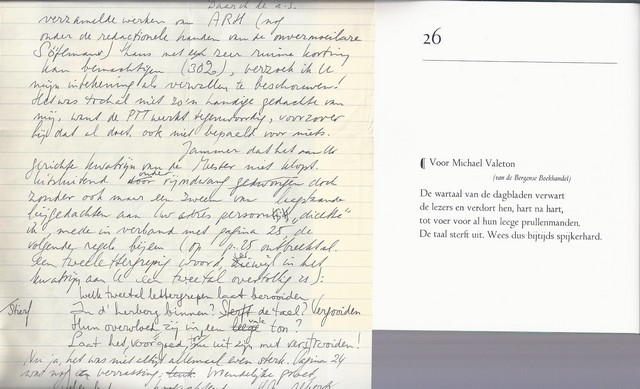 Daar ik de
verzamelde werken van ARH (nog
onder de redactionele handen van de onvermoeibare
thans met een zeer ruime korting
kan bemachtigen (30%), verzoek ik U
mijn intekening als vervallen te beschouwen!
Het was toch al niet zo'n handige gedachte van
mij, want de PTT werkt tegenwoordig, voorzover
hij dat al doet, ook niet bepaald voor niets.
Jammer dat het aan Uw
gerichte kwatrijn van de Meester niet klopt.
Uitsluitend onder rijmdwang gedwongen doch
zonder ook maar een zweem van
bijgedachten aan Uw adres persoonlijk, "dichtte"
ik, mede in verband met pagina 25, de
volgende regels bijeen (op p. 25 ontbreekt al
een tweelettergrepig woord, terwijl in het
kwatrijn aan U een tweetal overtollig is):
Welk tweetal lettergrepen laat berooiden
Stierf
In d' herberg binnen? Sterft de taal? Vergooiden
Hun overvloed zij in een ton?
Laat het, voorgoed, uit zijn met verstrooiden!
Nu ja, het was niet altijd allemaal even sterk. Pagina 24
was nog een verrassing. Vriendelijke groet,
26
Voor Michael Valeton
(van de Bergense Boekhandel)
De wartaal van de dagbladen verwart
de lezers en verdort hen, hart na hart,
tot voer voor al hun leege prullenmanden.
De taal sterft uit. Wees dus bijtijds spijkerhard.